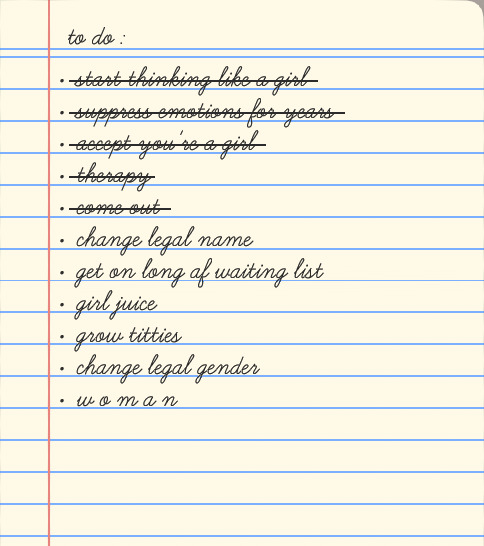 to do :
• start thinking like a girl
• suppress emotions for years
• accept you're a girl
• therapy
• come out
• change legal name
• get on long af waiting list
• girl juice
• grow titties
• change legal gender
• w o m a n